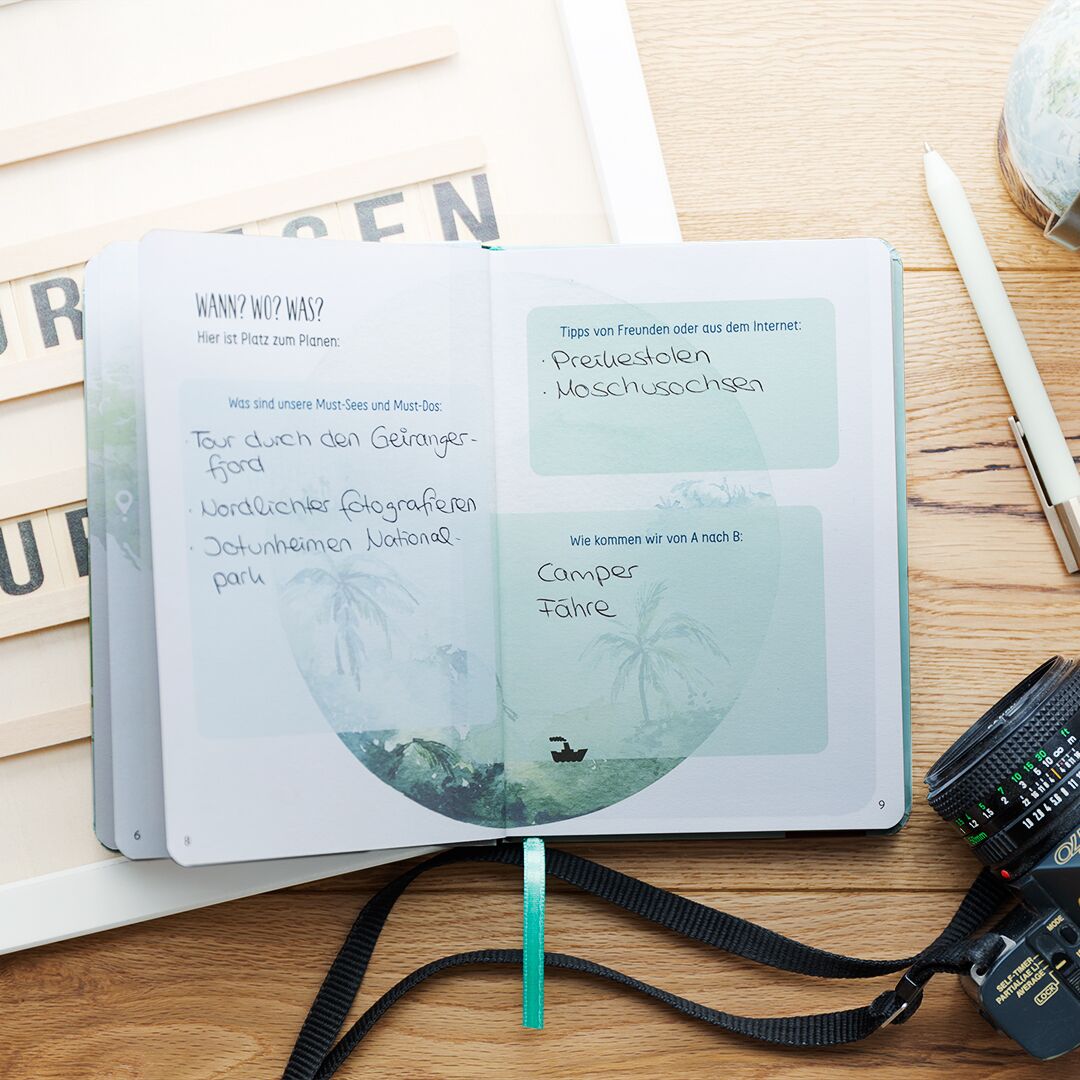 SEN
UR
UR
WANN? WO? WAS?
Hier ist Platz zum Planen:
Was sind unsere Must-Sees und Must-Dos:
· Tour durch den Geiranger-
fjord
· Nordlichter fotografieren
· Jotunheimen National-
park
6
8
Tipps von Freunden oder aus dem Internet:
· Preikestolen
· Moschusochsen
Wie kommen wir von A nach B:
Camper
Fähre
9
ft
m
MODE
SELF-TIMER
PARTIAL(AE L)
AVERAGE
LOCK